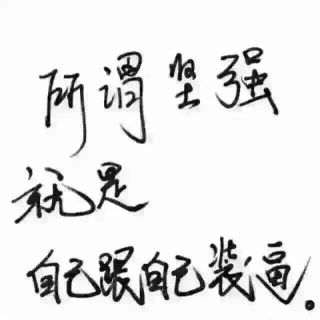 所谓坚强
就是
自己跟自己装逼。